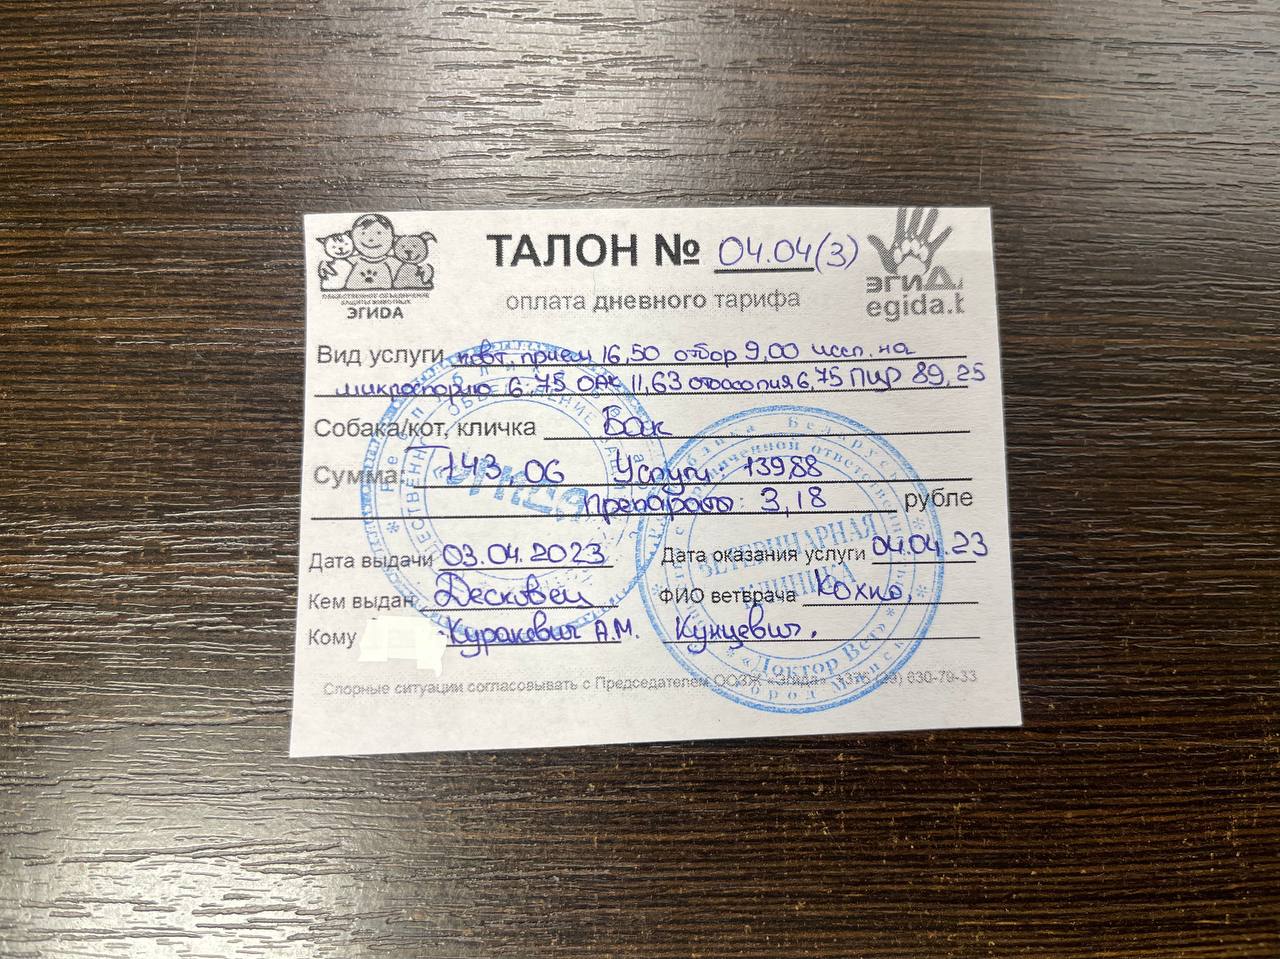 ТАЛОН № 04.04(3)
оплата дневного тарифа
ОБЩЕСТВЕННОЕ ОБЪЕДИНЕНИЕ
ЗАЩИТЫ ЖИВОТНЫХ
ЭГИДА
ЭГИД
egida.b
Вид услуги повт. прием 16,50 отбор 9,00 иссл. на
микроспорию 6,75 ОАК 11,63 отоскопия 6,75 ПЦР 89,25
Собака/кот, кличка Бак
Сумма: 143,06 Услуги 139,88
Препараты: 3,18 рубле
Дата выдачи 03.04.2023 Дата оказания услуги 04.04.23
Кем выдан Десковец ФИО ветврача Кохно,
Кому Куракевич А.М. Кунцевич.
Спорные ситуации согласовывать с Председателем ООЗЖ «Эгида» 630-79-33
ЭГИДА
ВЕТЕРИНАРНАЯ
КЛИНИКА
«Доктор Вет»